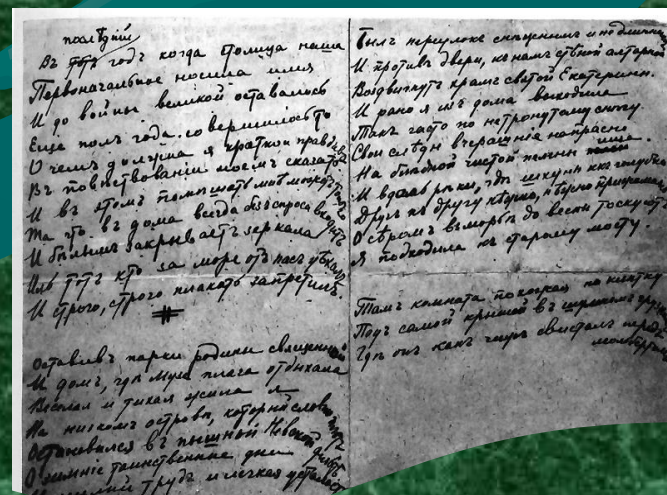 послѣдній
Въ тотъ годъ когда столица наша
Первоначальное носила имя
И до войны великой оставалось
Еще полъ года. совершилось то
О чемъ должна я кратко и правдиво
Въ повѣствованіи моемъ сказать
И въ этомъ помѣшать мнѣ можетъ только
Та что въ дома всегда безъ спроса входитъ
И бѣлымъ закрываетъ зеркала
Иль тотъ кто за море отъ насъ уѣхалъ
И строго, строго плакать запретилъ.
Оставивъ парки родины священной
И домъ, гдѣ Муза плача отдыхала
Веселая и тихая жила я
На низкомъ островѣ, который словно плотъ
Остановился въ пышной Невской дельтѣ
О зимніе таинственные дни
И милый трудъ и легкая усталость
Былъ переулокъ снѣжнымъ и недлиннымъ
И противъ двери, къ намъ стѣной алтарной
Воздвигнутъ храмъ святой Екатерины.
И рано я изъ дома выходила
Такъ часто по нетронутому снѣгу.
Свои слѣды вчерашніе напрасно
На блѣдной чистой пеленѣ ища
И вдоль рѣки, гдѣ шхуны какъ голубки
Другъ къ другу нѣжно, нѣжно прижимаясь
О сѣромъ взморьѣ до весны тоскуютъ
Я подходила къ старому мосту.
Тамъ комната похожая на клѣтку
Подъ самой крышей въ
Гдѣ онъ какъ чижъ свисталъ передъ
мольбертомъ